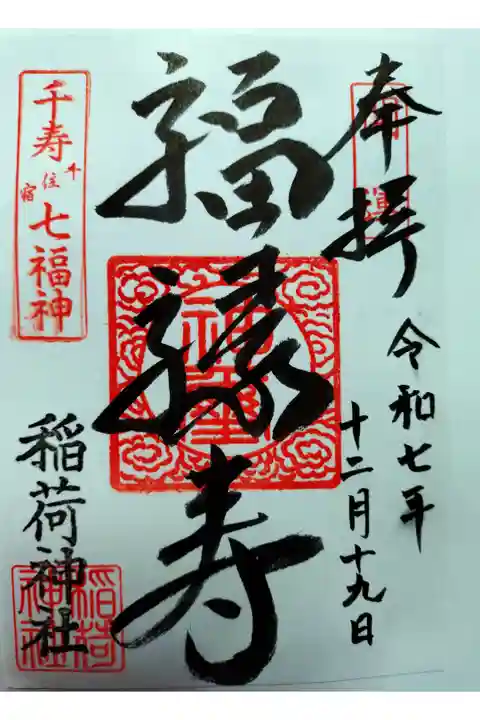 奉拝
令和七年
十二月十九日
福禄寿
千寿七福神
千住宿
稲荷神社
稲荷
神社